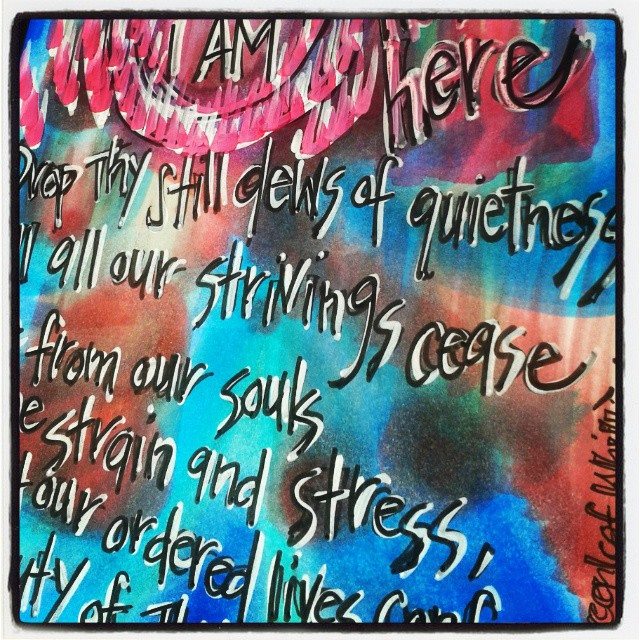 I AM
here
Drop Thy still dews of quietness
all our strivings cease
from our souls
strain and stress,
our ordered lives
of